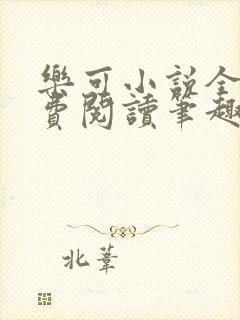 樂可小說全
費閱讀筆趣
北葦